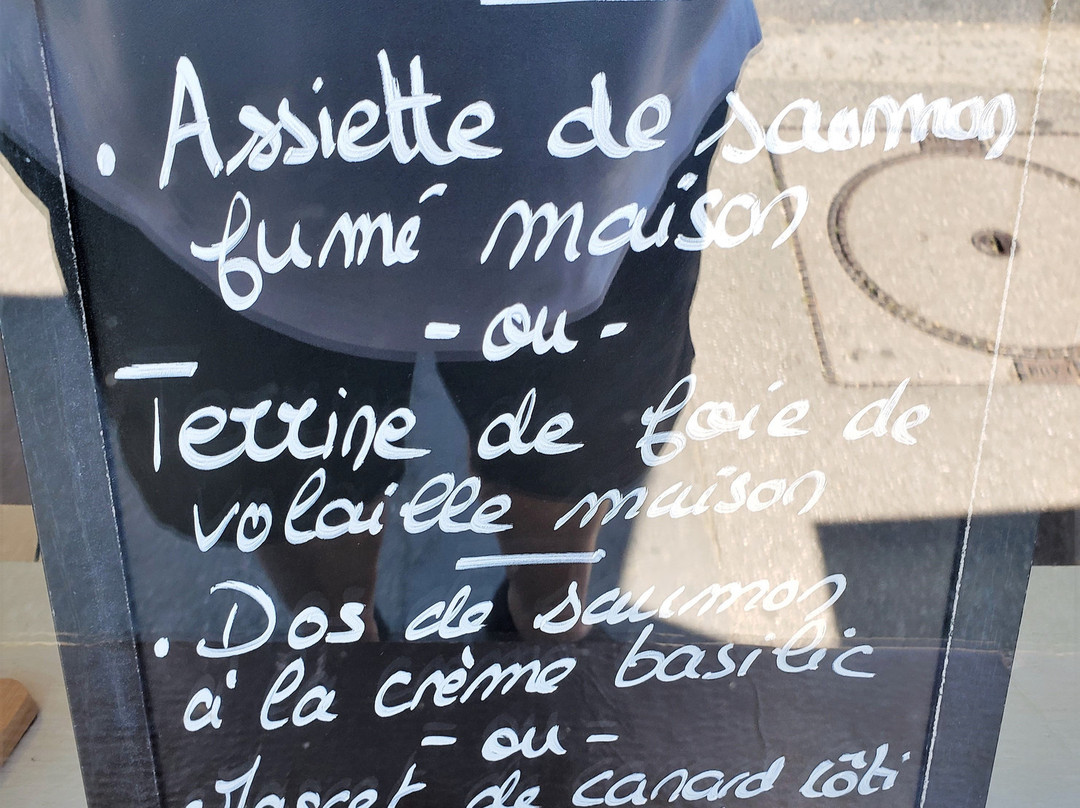 . Assiette de saumon
fumé maison
- ou -
Terrine de foie de
volaille maison
. Dos de saumon
à la crème basilic
- ou -
de canard rôti